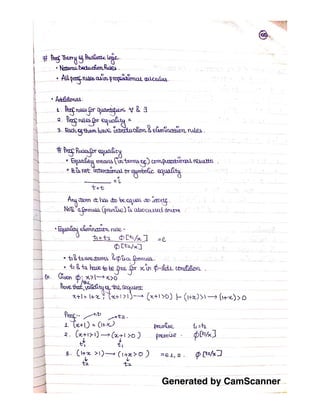 # Proof Theory of Predicate logic
• Natural Deduction Rules
• All proof rules as in propositional calculus
• Additional
1. Proof rules for quantifiers ∀ & ∃
2. Proof rules for equality =
3. Each of them have introduction & elimination rules
# Proof Rules for equality
• Equality means (in terms of) computational results
• It is not intensional or symbolic equality
=i
t = t
Any term t has to be equal to itself
Note a formula (premise) is
• Equality elimination rule -
t1 = t2 Φ[t1/x] =e
Φ[t2/x]
• t1 & t2 are terms & Φ is a formula
• t1 & t2 have to be free for x in Φ
Ex. Given Φ: x>1 → x>0
Prove that, validity of the sequent
x+1 = 1+x, (x+1>1) → (x+1>0) ⊢ (1+x)>1 → (1+x)>0
Proof :- t1 t2
1. (x+1) = (1+x) premise t1=t2
2. (x+1>1) → (x+1>0) premise Φ[t1/x]
t1 t1
3. (1+x >1) → (1+x>0) =e 1, 2. Φ[t2/x]
t2 t2
Generated by CamScanner